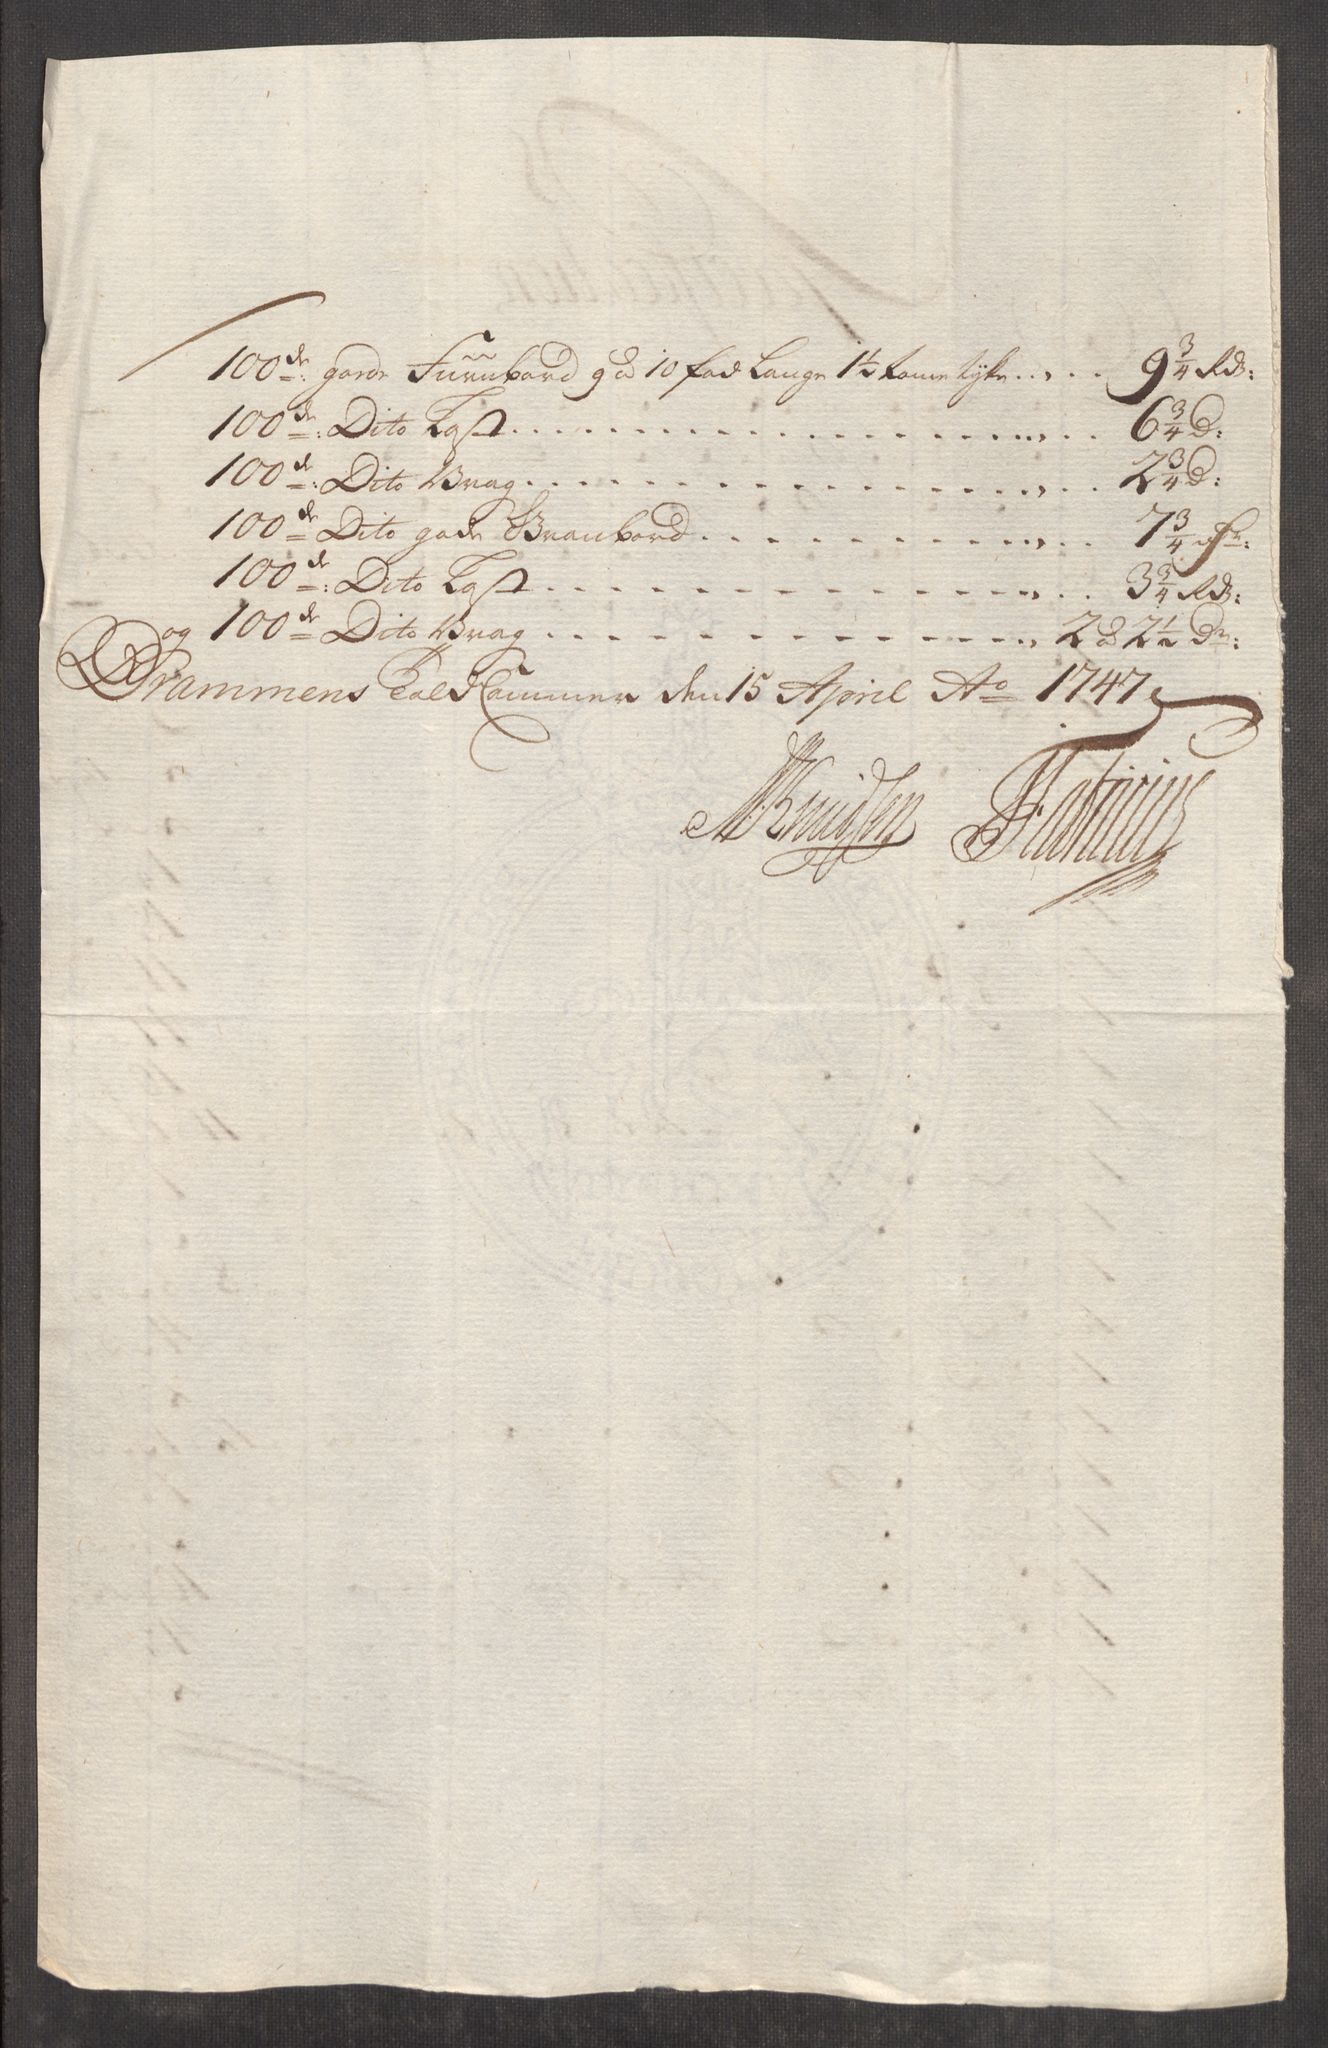 100de: gode Fürrubord 9 à 10 fod Lange 1½ tome tyke ..... 9¾ Rdr:
100de: Dito Last ..... 6¾ D:
100de: Dito Vrag ..... 2¾ D:
100de Dito gode Granbord ..... 7¾
100de: Dito Last ..... 3¾ Rdr:
og 100de Dito Vrag ..... 2 à 2½ Dr:
Drammens Told Cammer den 15 April Ao 1747
Knudsen